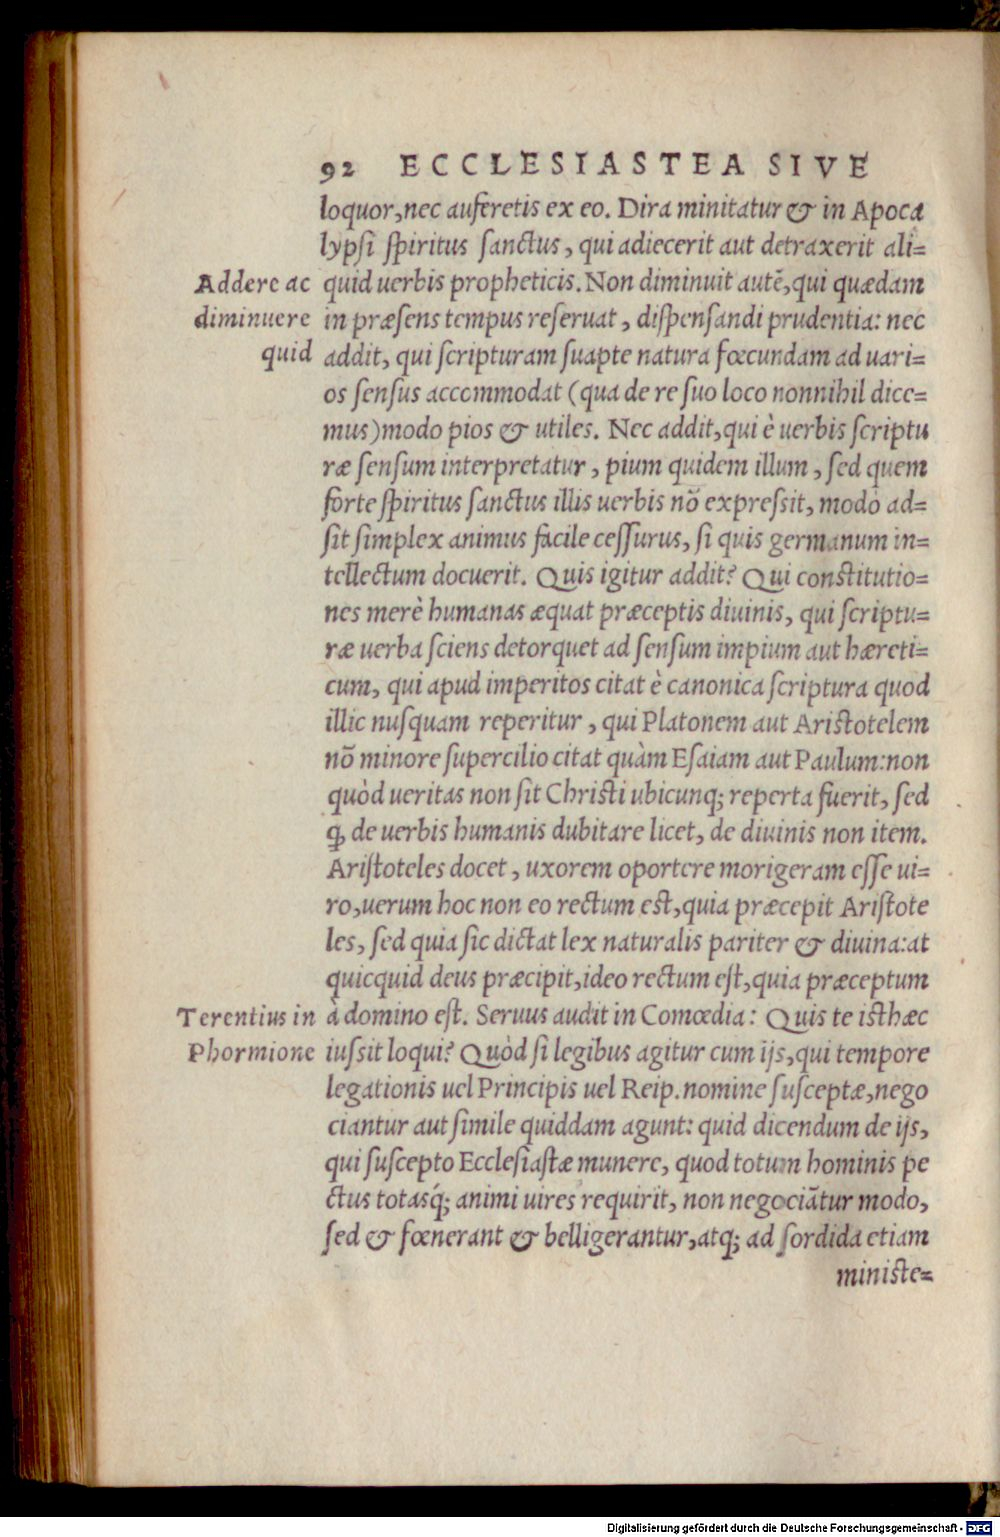 92 ECCLESIASTEA SIVE
loquor,nec auferetis ex eo. Dira minitatur & in Apoca
lypſi ſpiritus ſanctus, qui adiecerit aut detraxerit ali=
Addere ac
diminuere
quid
quid uerbis propheticis. Non diminuit autē,qui quædam
in præſens tempus reſeruat, diſpenſandi prudentia: nec
addit, qui ſcripturam ſuapte natura fœcundam ad uari=
os ſenſus accommodat (qua de re ſuo loco nonnihil dice=
mus)modo pios & utiles. Nec addit,qui è uerbis ſcriptu
ræ ſenſum interpretatur, pium quidem illum, ſed quem
forte ſpiritus ſanctus illis uerbis nō expreſsit, modò ad=
ſit ſimplex animus facile ceſſurus, ſi quis germanum in=
tellectum docuerit. Quis igitur addit? Qui conſtitutio=
nes merè humanas æquat præceptis diuinis, qui ſcriptu=
ræ uerba ſciens detorquet ad ſenſum impium aut hæreti=
cum, qui apud imperitos citat è canonica ſcriptura quod
illic nuſquam reperitur, qui Platonem aut Ariſtotelem
nō minore ſupercilio citat quàm Eſaiam aut Paulum:non
quòd ueritas non ſit Chriſti ubicunq; reperta fuerit, ſed
ꝙ de uerbis humanis dubitare licet, de diuinis non item.
Ariſtoteles docet, uxorem oportere morigeram eſſe ui=
ro,uerum hoc non eo rectum eſt,quia præcepit Ariſtote
les, ſed quia ſic dictat lex naturalis pariter & diuina:at
quicquid deus præcipit,ideo rectum eſt,quia præceptum
Terentius in
Phormione
à domino eſt. Seruus audit in Comœdia: Quis te iſthæc
iuſsit loqui? Quòd ſi legibus agitur cum ijs,qui tempore
legationis uel Principis uel Reip. nomine ſuſceptæ,nego
ciantur aut ſimile quiddam agunt: quid dicendum de ijs,
qui ſuſcepto Eccleſiaſtæ munere, quod totum hominis pe
ctus totasq́; animi uires requirit, non negociātur modo,
ſed & fœnerant & belligerantur,atq; ad ſordida etiam
miniſte=
Digitalisierung gefördert durch die Deutsche Forschungsgemeinschaft - DFG